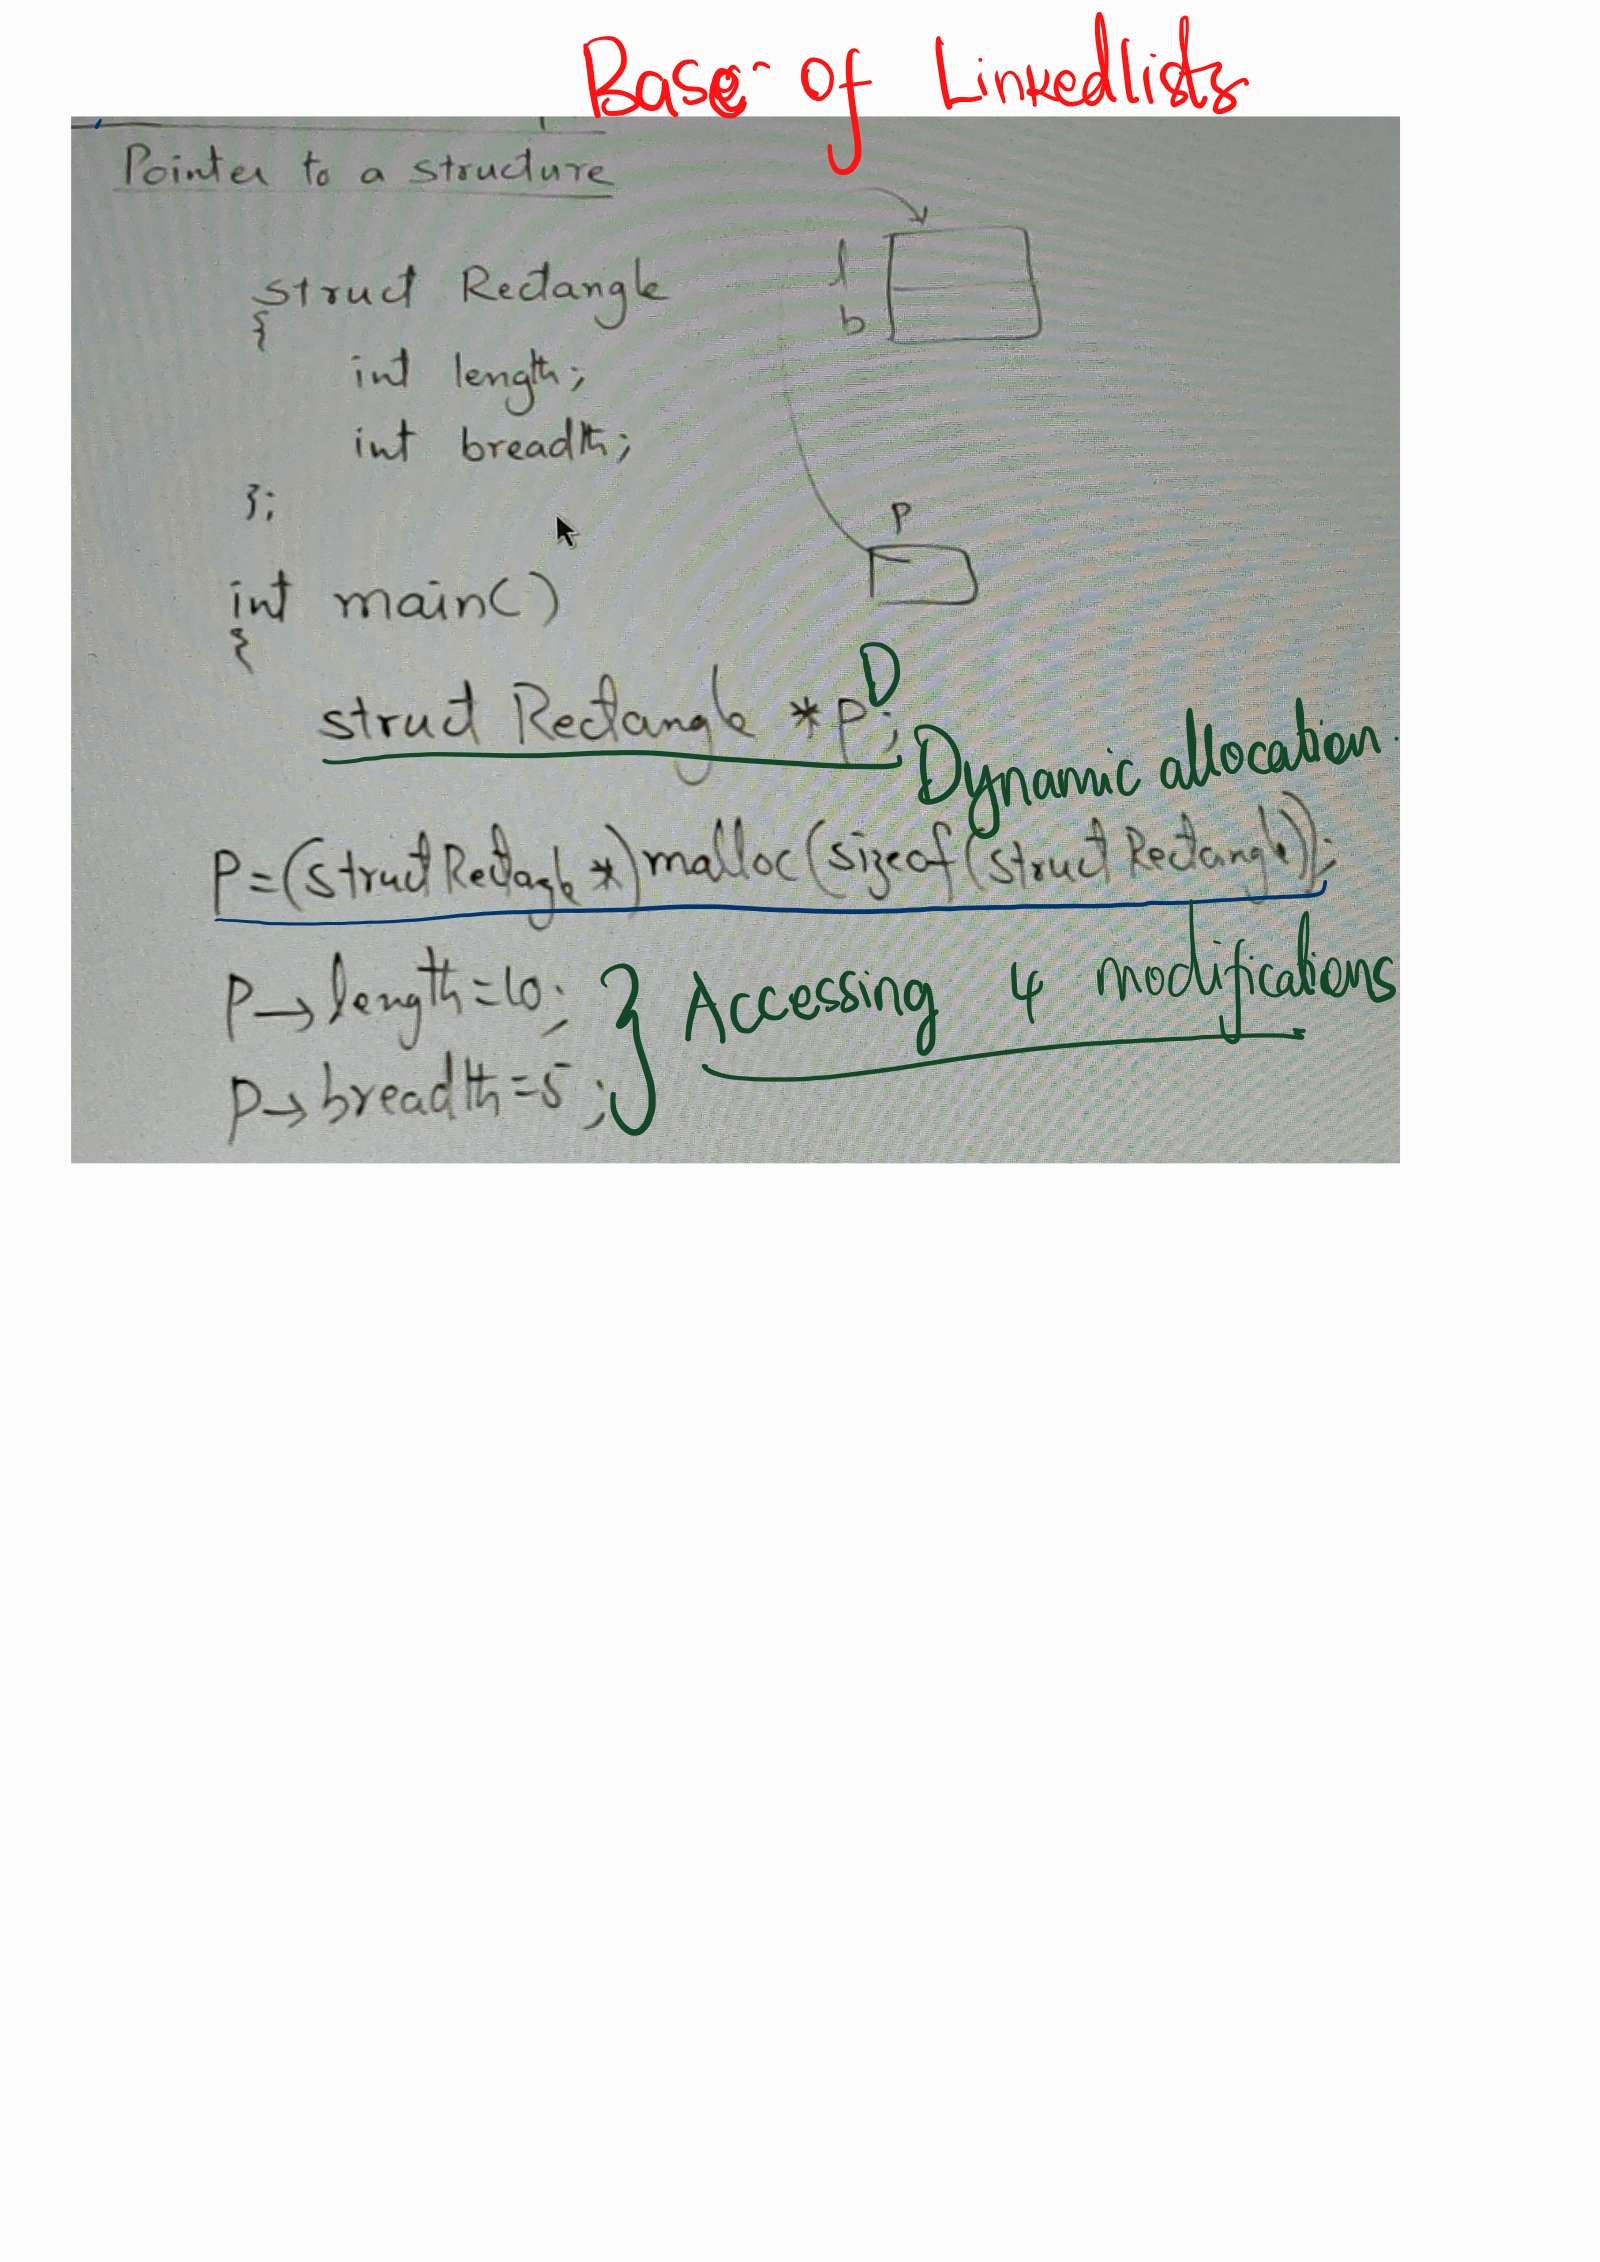 Base of Linkedlists
Pointer to a structure
struct Rectangle
{
int length;
int breadth;
};
l
b
p
int main()
{
struct Rectangle *p;
D
Dynamic allocation.
P=(struct Rectagle *)malloc(sizeof(struct Rectangle));
p→length=10;
p→breadth=5;
} Accessing & modifications